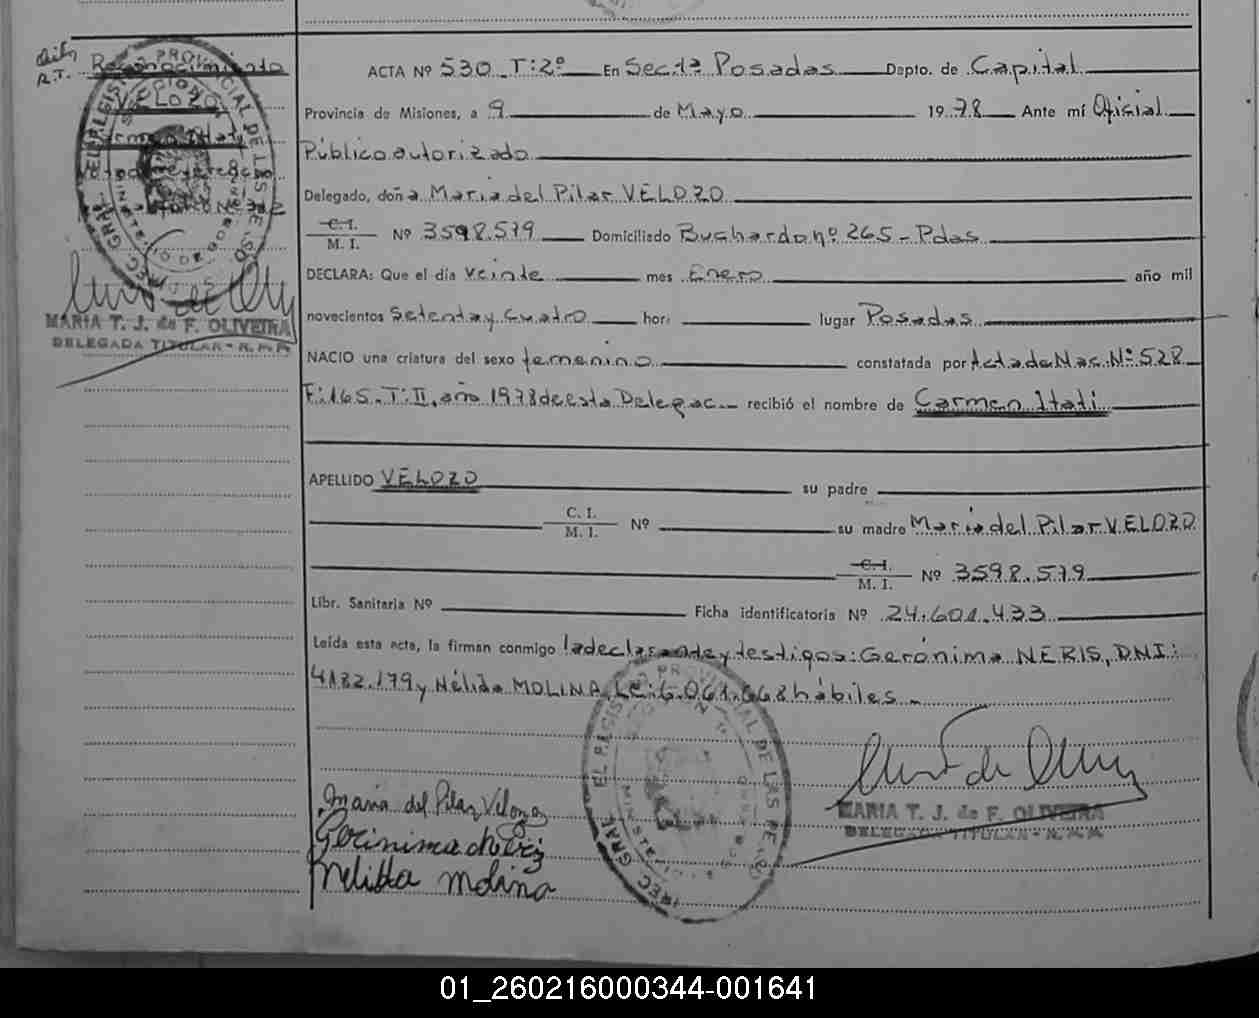 Reconocimiento
VELOZO
Carmen Itatí
R.T.
ACTA Nº 530 T:2º En Sec.1ª Posadas Dpto. de Capital
Provincia de Misiones, a 9 de Mayo 1978 Ante mí Oficial
Público autorizado
Delegado, doña María del Pilar VELOZO
C. I.
M. I. Nº 3598.579 Domiciliado Buchardo nº 265 - Pdas
DECLARA: Que el día veinte mes Enero año mil
novecientos setenta y cuatro hora lugar Posadas
NACIO una criatura del sexo femenino constatada por Acta de Nac. Nº 528
F:165. T:II, año 1978 de esta Delegac. recibió el nombre de Carmen Itatí
APELLIDO VELOZO su padre
C. I.
M. I. Nº su madre María del Pilar VELOZO
C. I.
M. I. Nº 3598.579
Libr. Sanitaria Nº Ficha identificatoria Nº 24.601.433
Leída esta acta, la firman conmigo la declarante y testigos: Gerónima NERIS, DNI:
4132.179 y Nélida MOLINA, LC: 6.061.668 hábiles.
MARIA T. J. de F. OLIVEIRA
DELEGADA TITULAR - R. P. P.
María del Pilar Velozo
Gerónima Neris
Nélida Molina
MARIA T. J. de F. OLIVEIRA
DELEGADA TITULAR - R. P. P.
01_260216000344-001641